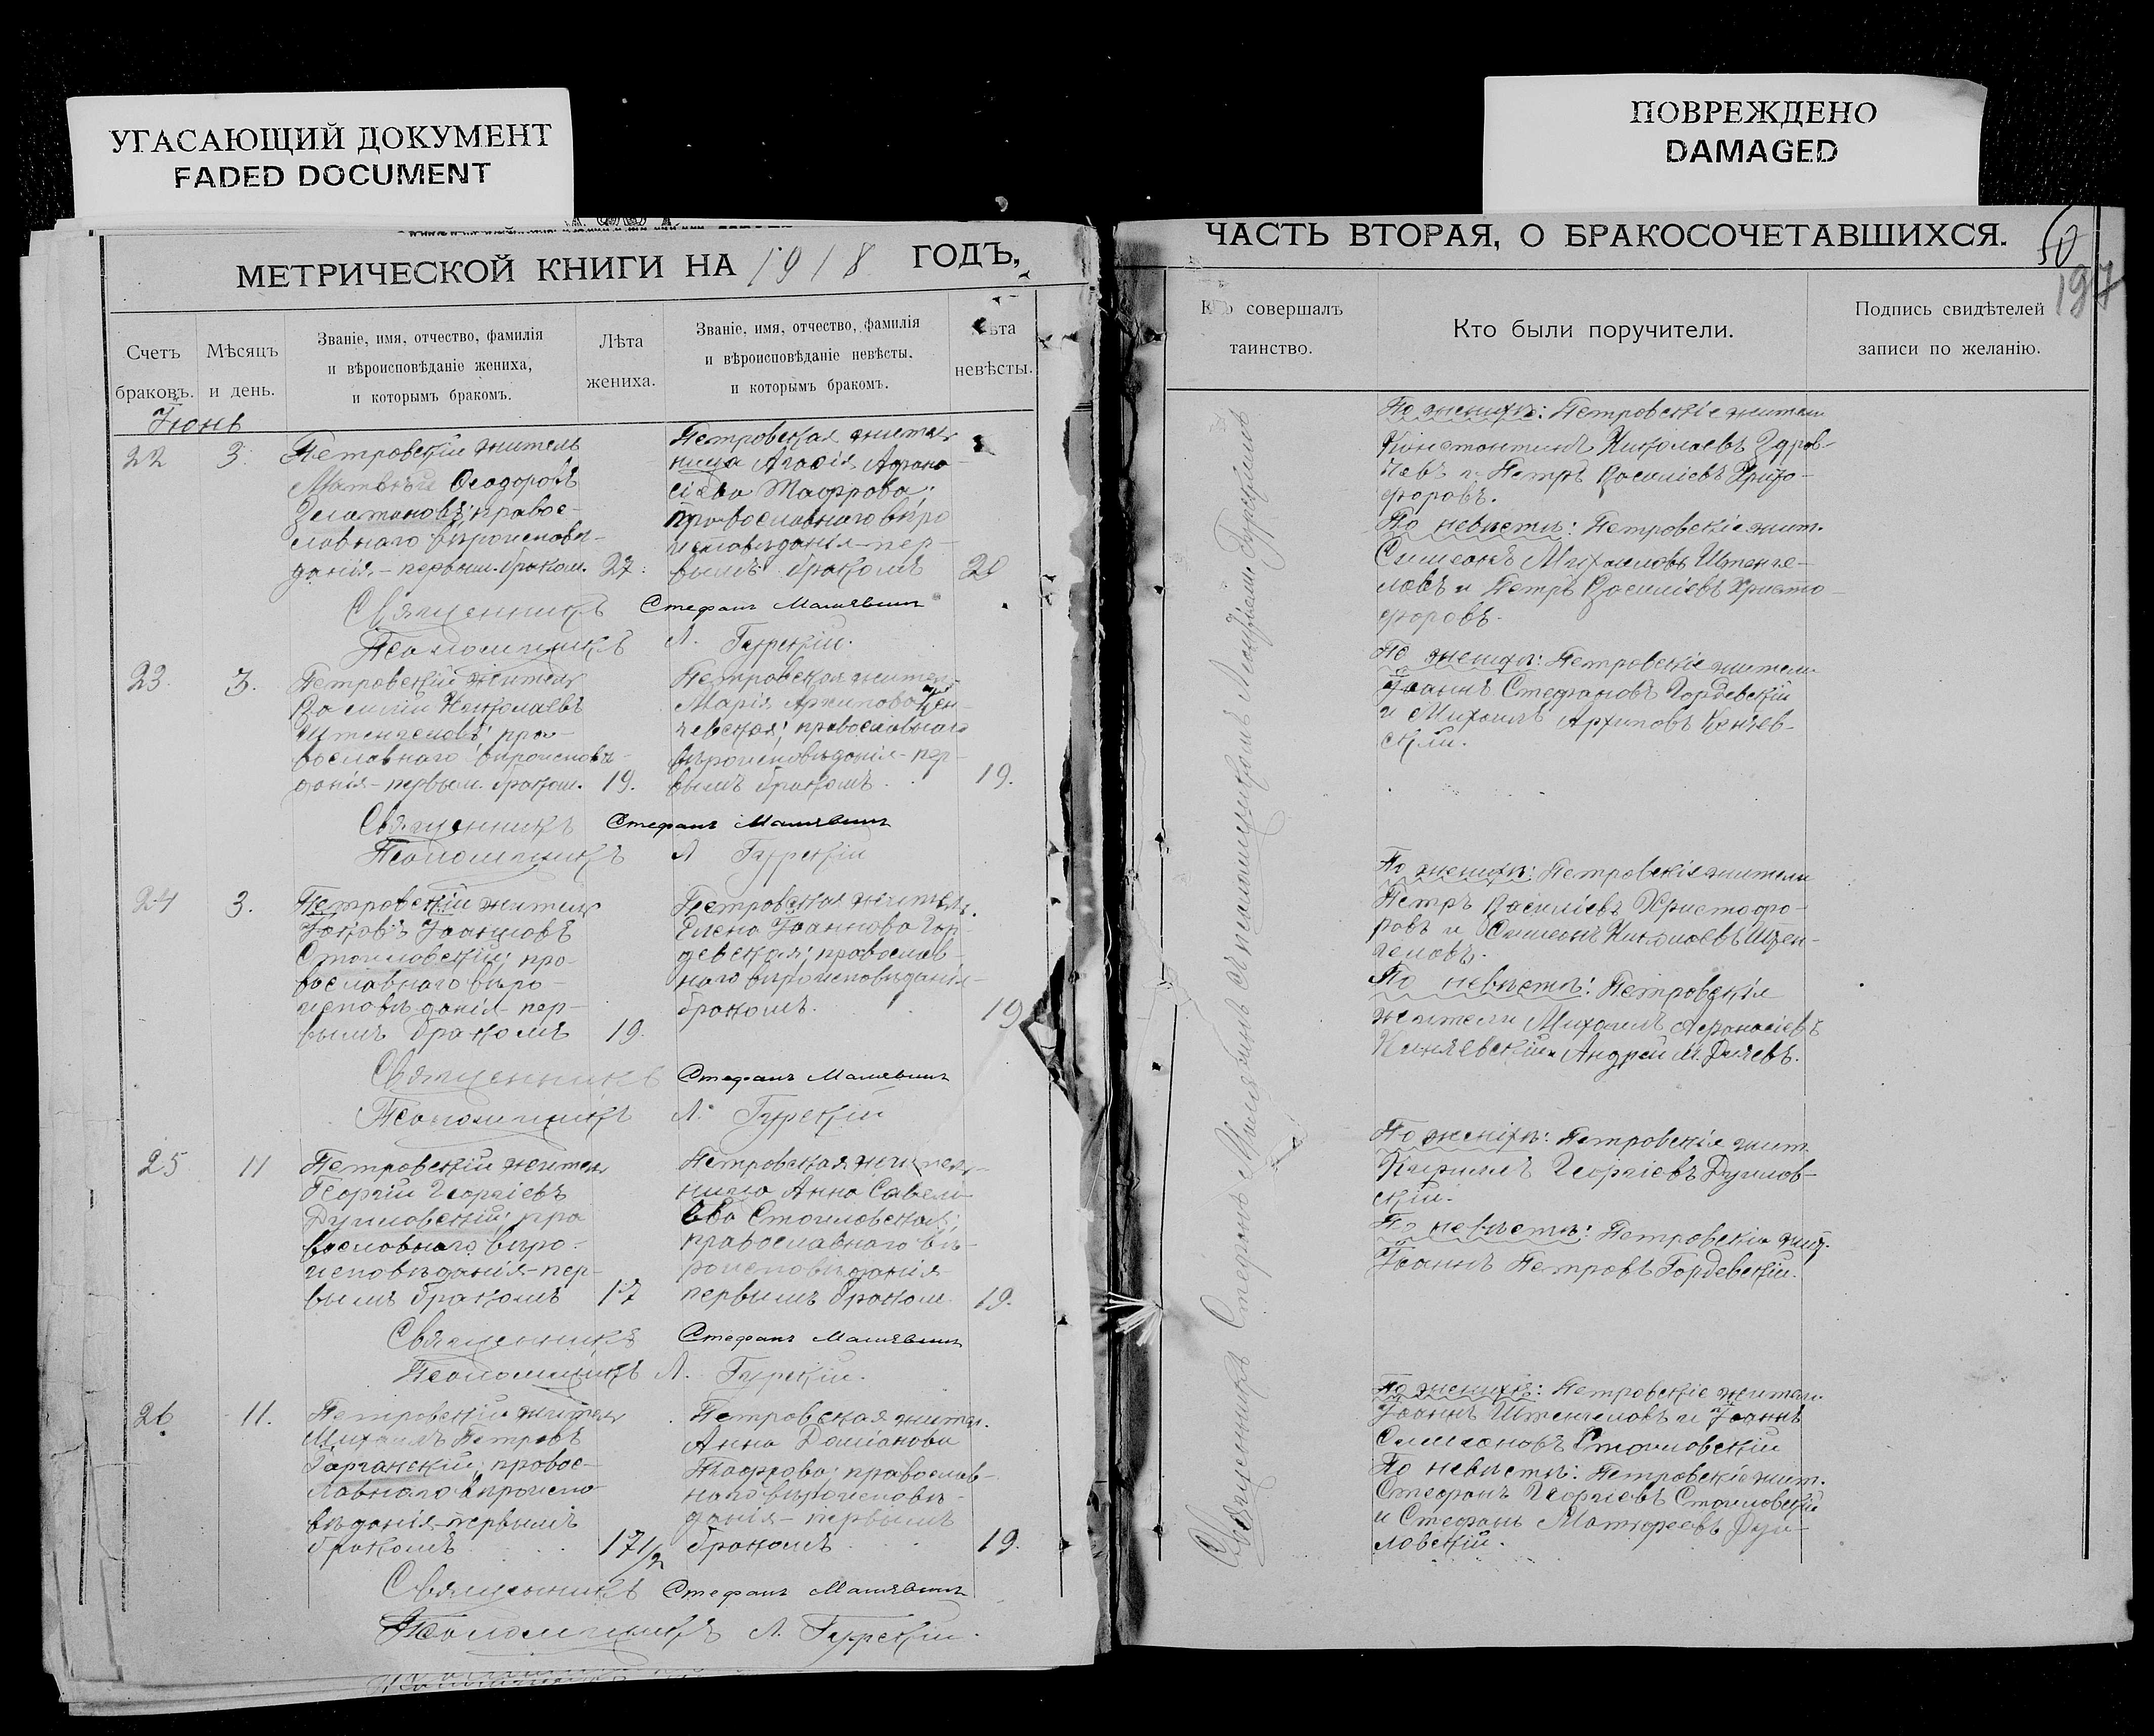 УГАСАЮЩИЙ ДОКУМЕНТ
FADED DOCUMENT
ПОВРЕЖДЕНО
DAMAGED
МЕТРИЧЕСКОЙ КНИГИ НА 1918 ГОДЪ,
Счетъ браковъ.
Мѣсяцъ и день.
Званіе, имя, отчество, фамилія
и вѣроисповѣданіе жениха,
и которымъ бракомъ.
Лѣта жениха.
Званіе, имя, отчество, фамилія
и вѣроисповѣданіе невѣсты.
и которымъ бракомъ.
Лѣта невѣсты.
Іюнь
22
3.
Петровскій житель
Матвѣй Ѳеодоровъ
Златановъ; правос-
лавнаго вѣроисповѣ-
данія, - первым. браком.
27.
Петровская житель
ница Агафія Афана
сіева
православнаго вѣро
исповѣданія - пер-
вымъ бракомъ
20
Священникъ Стефанъ
Псаломщикъ Л. Гурскій.
23.
3.
Петровскій житель
Василій Николаевъ
Штенгеловъ; пра-
вославнаго вѣроисповѣ-
данія - первым. браком.
19.
Петровская жител.
Марія Архипова
православнаго
вѣроисповѣданія - пер-
вымъ бракомъ
19.
Священникъ Стефанъ
Псаломщикъ Л Гурскій
24
3.
Петровскій житель
Іаковъ
Стоиловскій; пра-
вославнаго вѣро-
исповѣданія пер-
вымъ бракомъ
19.
Петровская жительн.
Елена Іоаннова Гор-
девская; православ-
наго вѣроисповѣданія -
бракомъ.
19
Священникъ Стефанъ
Псаломщикъ Л. Гурскій
25
11
Петровскій житель
Георгій Георгіевъ
пра
вославнаго вѣро-
исповѣданія - пер-
вымъ бракомъ
17
Петровская житель-
ница Анна Савель
ева Стоиловская;
православнаго вѣ-
роисповѣданія
первымъ браком.
19.
Священникъ Стефанъ
Псаломщикъ Л. Гурскій.
26
11.
Петровскій житель
Михаилъ Петровъ
правос-
лавнаго вѣроиспо
вѣданія - первымъ
бракомъ
17 1/2
Петровская жител.
Анна Даміанова
православ-
наго вѣроисповѣ-
данія - первымъ
бракомъ
19.
Священникъ Стефанъ
Псаломщикъ Л. Гурскій.
ЧАСТЬ ВТОРАЯ, О БРАКОСОЧЕТАВШИХСЯ.
50
197
совершалъ
таинство.
Кто были поручители.
Подпись свидѣтелей
записи по желанію.
Священникъ Стефанъ съ псаломщикомъ
По женихѣ: Петровскіе жители
Константинъ Николаевъ
и Петръ Василіевъ Христо-
форовъ.
По невѣстѣ: Петровскіе жит.
Симеонъ Михаиловъ Штенге-
ловъ и Петръ Василіевъ Христо-
форовъ.
По женихѣ: Петровскіе жители
Іоаннъ Стефановъ Гордевскій
и Михаилъ Архиповъ
По женихѣ: Петровскія жители
Петръ Василіевъ Христофо-
ровъ и Симеонъ Николаевъ Штен-
геловъ.
По невѣстѣ: Петровскія
жители Михаилъ Афанасіевъ
Андрей М.
По женихѣ: Петровскія жит.
Кириллъ Георгіевъ
По невѣстѣ: Петровскія жит.
Іоаннъ Петровъ Гордевскій.
По женихѣ: Петровскіе жители
Іоаннъ Штенгеловъ и Іоаннъ
Симеоновъ Стоиловскій
По невѣстѣ: Петровскіе жит.
Стефанъ Георгіевъ Стоиловскій
и Стефанъ